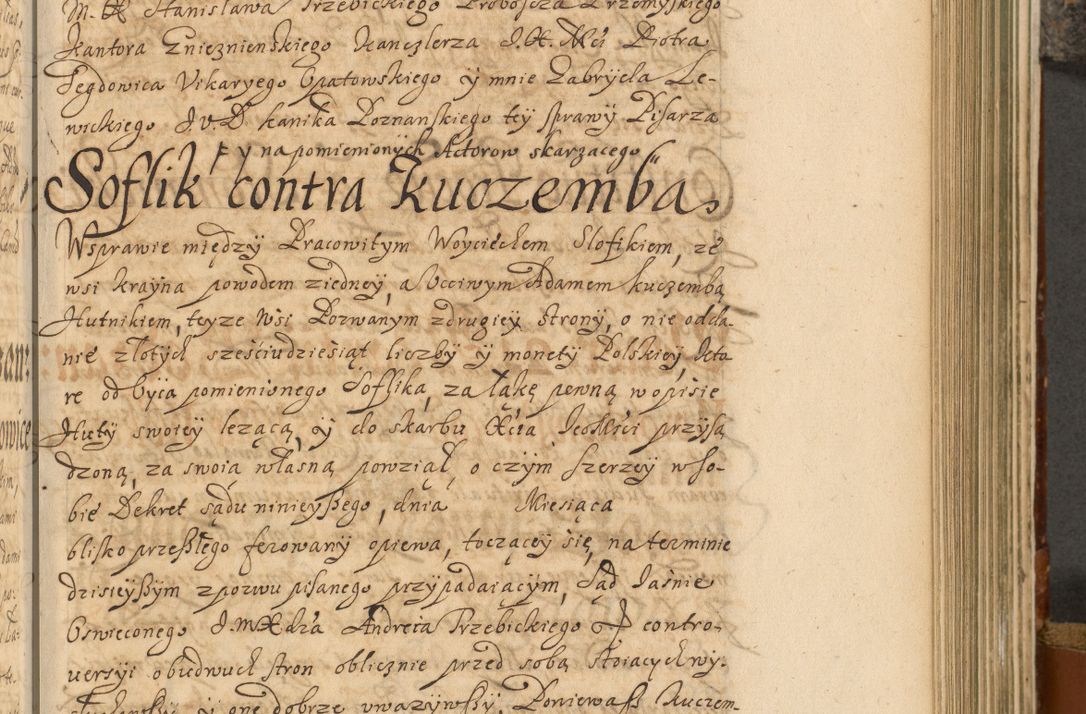 M. X Stanisława Trzebickiego Proboszcza Przemyskiego
Kantora Gnieznienskiego Kanczlerza J. X. Mci Piotra
Legdowica Vikaryego Opatowskiego ÿ mnie Gabryela Le-
wickiego J. v. D kanika Poznanskiego teÿ sprawÿ Pisarza
ÿ napomienionych Actorow skarzącego
Soflik contra Kuczemba
Wsprawie międzÿ Pracowitÿm Woyciechem Slofikiem, ze
wsi kraÿna powodem ziedneÿ, a Vcciwym Adamem kuczembą
Hutnikiem, teyze Wsi Pozwanym zdrugieÿ stronÿ, o nie odda-
nie złotych sześciudziesiąt liczbÿ ÿ monetÿ Polskieÿ, kto
re od Oÿca pomienionego Soflika, za łąkę pewną w opisie
Hutÿ swoieÿ lezącą, ÿ do skarbu Xcia Jeo Mści przÿsą
dzoną, za swoia własną powziął, o czÿm szerzeÿ w so-
bie Dekret sądu ninieÿszego, dnia Miesiąca
blisko przeszłego ferowanÿ opiewa, toczączeÿ się, na terminie
dzisieÿszÿm z pozwu pisanego przÿpadaiącÿm, Sąd Jaśnie
Oswieconego J. m Xdza Andrzeia Trzebickiego contro-
versÿi obudwuch stron oblicznie przed sobą stoiacÿch wÿ-
słuchawszÿ ÿ one dobrze vwazÿwszÿ, Poniewasz Kuczem-